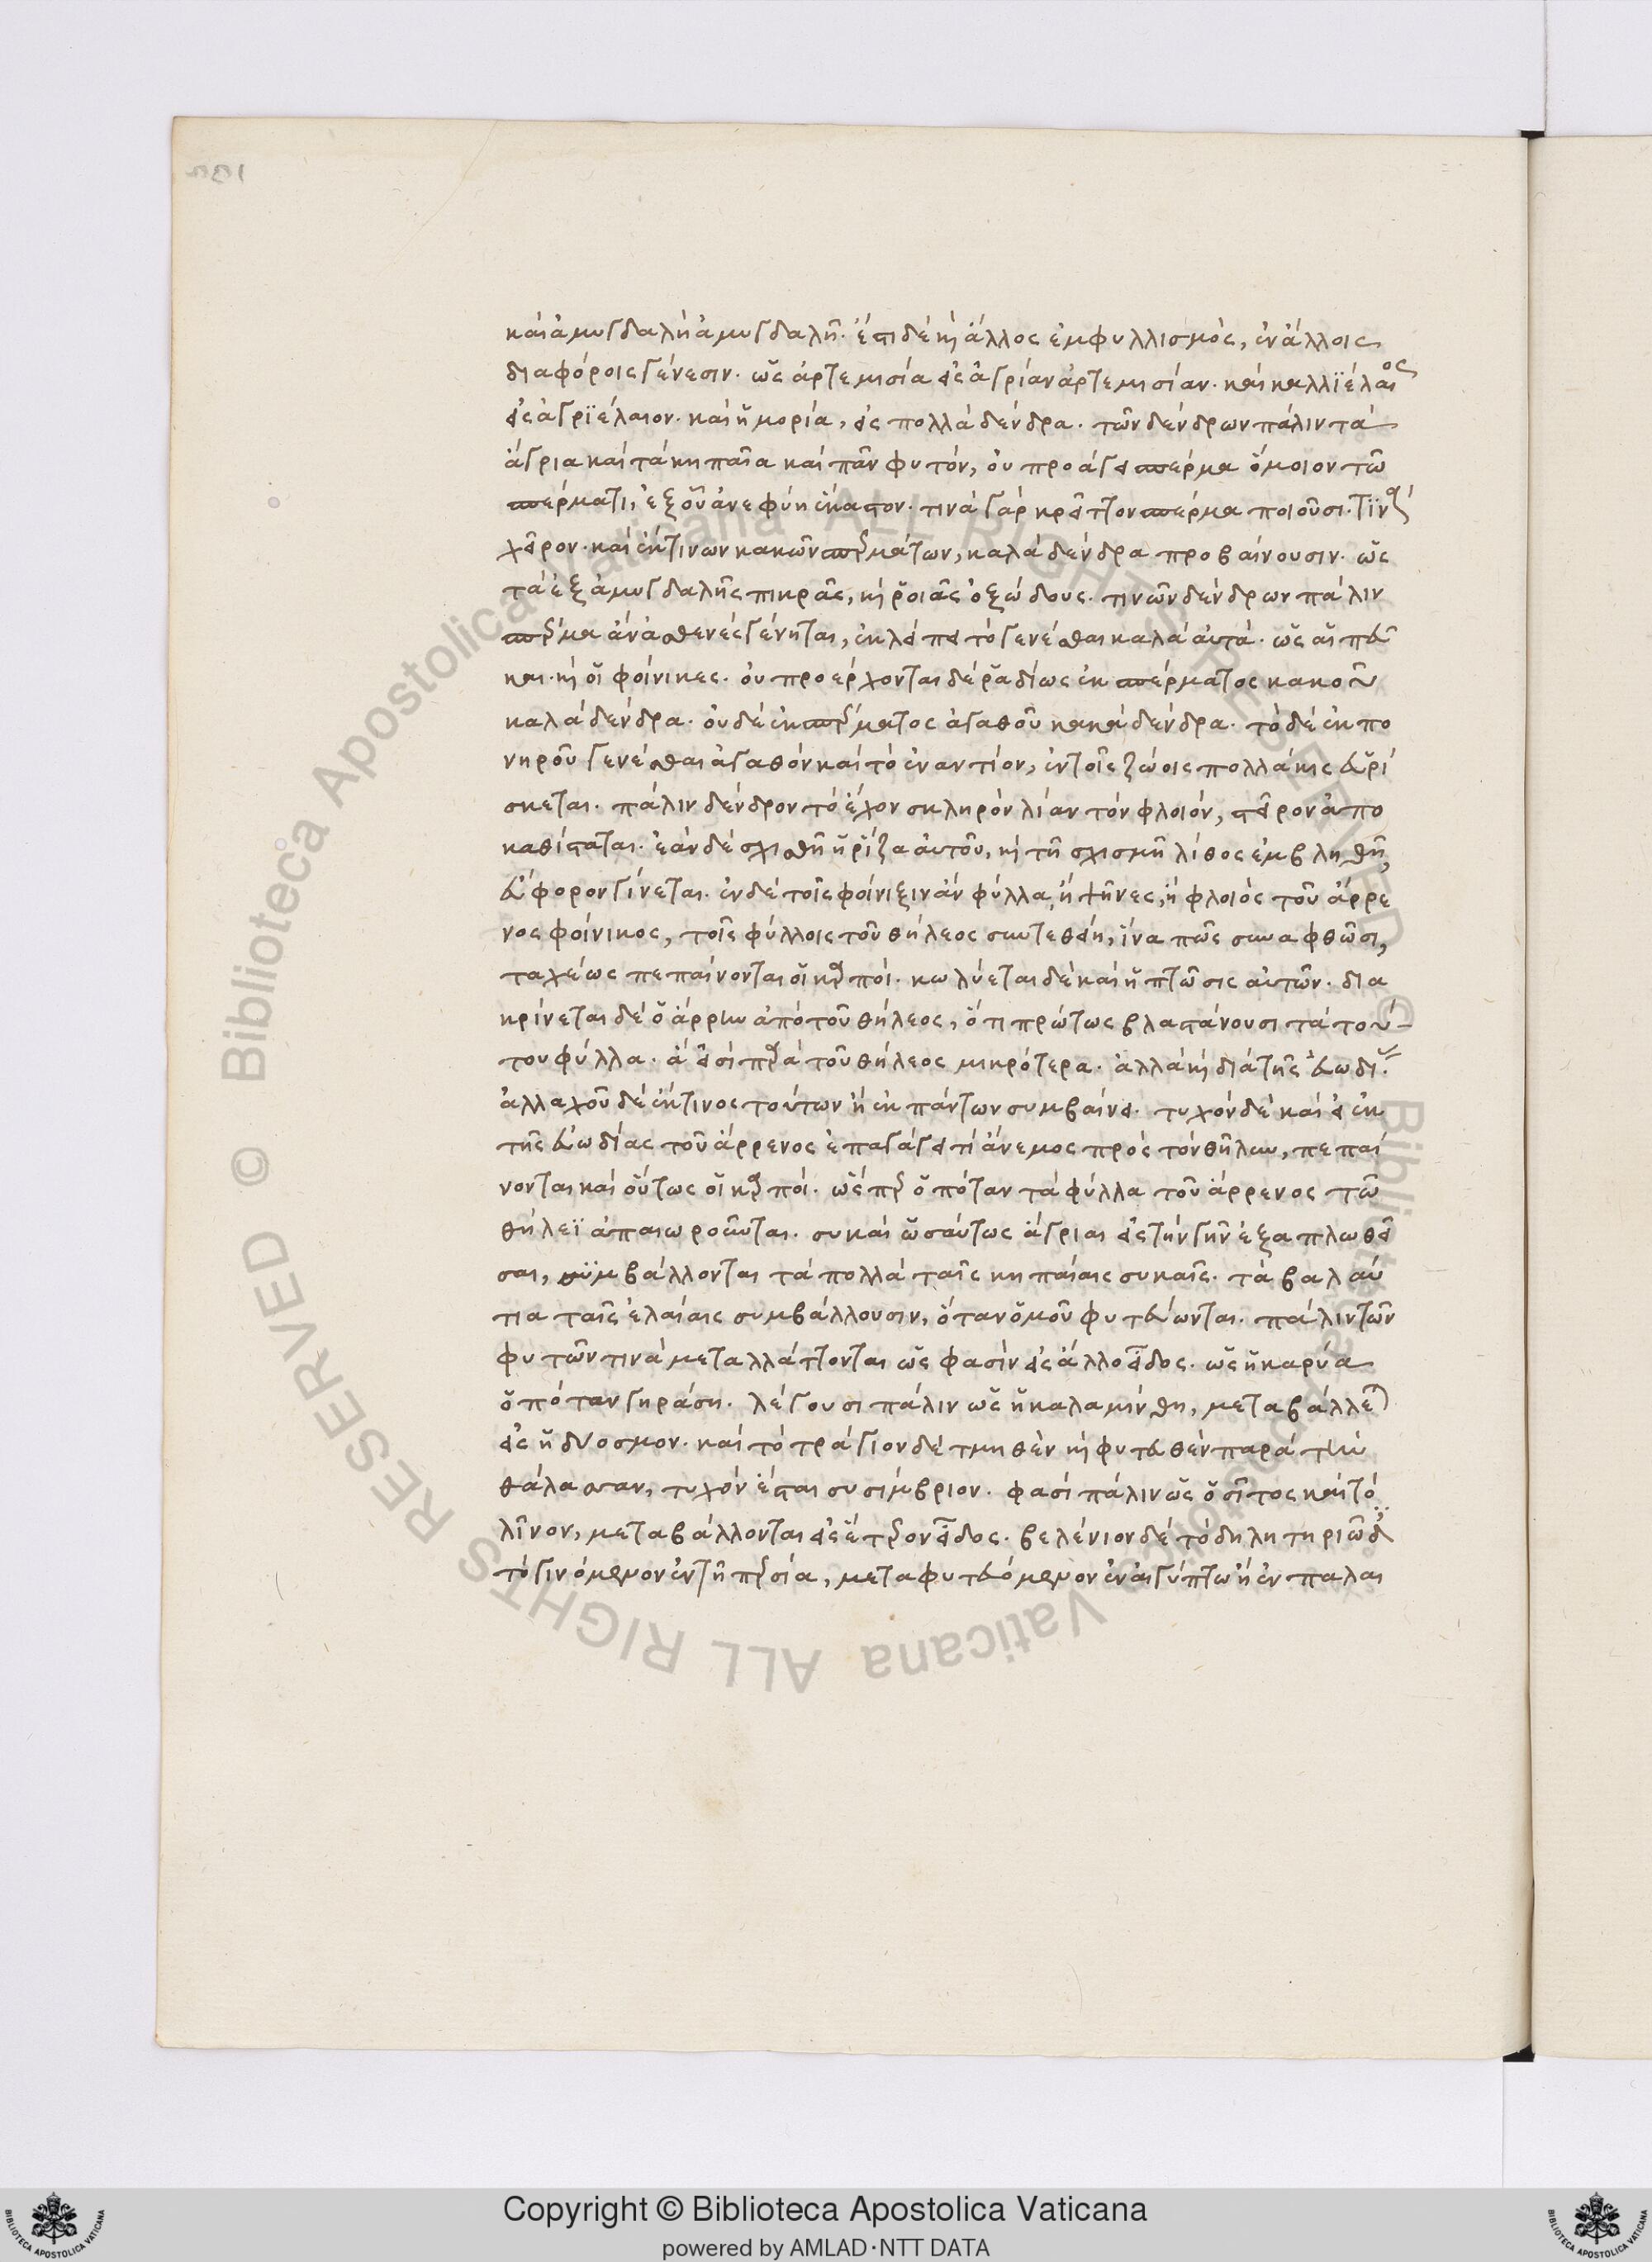 καὶ ἀμυγδαλῆ ἀμυγδαλῆ. ἔστι δὲ καὶ ἄλλος ἐμφυλλισμὸς, ἐν ἄλλοις
διαφόροις γένεσιν. ὡς ἀρτεμισία εἰς ἀγρίαν ἀρτεμισίαν. καὶ καλλϊέλαιος
εἰς ἀγρϊέλαιον. καὶ ἡ μορία, εἰς πολλὰ δένδρα. τῶν δένδρων πάλιν τὰ
ἄγρια καὶ τὰ κηπαῖα καὶ πᾶν φυτόν, οὐ προάγει σπέρμα ὅμοιον τῶ
σπέρματι, ἐξ οὗ ἀνεφύη ἕκαστον. τινὰ γὰρ κρεῖττον σπέρμα ποιοῦσι. τινὰ
χεῖρον. καὶ ἔκ τινων κακῶν σπερμάτων, καλὰ δένδρα προβαίνουσιν. ὡς
τὰ ἐξ ἀμυγδαλῆς πικρᾶς, καὶ ῥοιᾶς ὀξώδους. τινῶν δένδρων πάλιν
σπέρμα ἂν ἀσθενὲς γένηται, ἐκλείπει τὸ γενέσθαι καλὰ αὐτὰ. ὡς αἱ πεῦ
και. καὶ οἱ φοίνικες. οὐ προέρχονται δὲ ῥαδίως ἐκ σπέρματος κακοῦ
καλὰ δένδρα. οὐδὲ ἐκ σπέρματος ἀγαθοῦ κακὰ δένδρα. τὸ δὲ ἐκ πο
νηροῦ γενέσθαι ἀγαθὸν καὶ τὸ ἐναντίον, ἐν τοῖς ζώοις πολλάκις εὑρί
σκεται. πάλιν δένδρον τὸ ἔχον σκληρὸν λίαν τὸν φλοιόν, στεῖρον ἀπο
καθίσταται. ἐὰν δὲ σχισθῆ ἡ ῥίζα αὐτοῦ, καὶ τῆ σχισμῆ λίθος ἐμβληθῆ,
εὔφορον γίνεται. ἐν δὲ τοῖς φοίνιξιν ἂν φύλλα, ἢ ψῆνες, ἢ φλοιὸς τοῦ ἄρρε
νος φοίνικος, τοῖς φύλλοις τοῦ θήλεος συντεθείη, ἵνα πως συναφθῶσι,
ταχέως πεπαίνονται οἱ καρποί. κωλύεται δὲ καὶ ἡ πτῶσις αὐτῶν. δια
κρίνεται δὲ ὁ ἄρρην ἀπὸ τοῦ θήλεος, ὅτι πρώτως βλαστάνουσι τὰ τού-
του φύλλα. ἅ εἰσὶ παρὰ τοῦ θήλεος μικρότερα. ἀλλὰ καὶ διὰ τῆς εὐωδίας.
ἀλλαχοῦ δὲ ἔκ τινος τούτων ἢ ἐκ πάντων συμβαίνει. τυχὸν δὲ καὶ εἰ ἐκ
τῆς εὐωδίας τοῦ ἄρρενος ἐπαγάγει τὶ ἄνεμος πρὸς τὸν θῆλυν, πεπαί
νονται καὶ οὕτως οἱ καρποί. ὥσπερ ὁπόταν τὰ φύλλα τοῦ ἄρρενος τῶ
θήλεϊ ἀπαιωροῦνται. συκαὶ ὡσαύτως ἄγριαι εἰς τὴν γῆν ἐξαπλωθεῖ
σαι, συμβάλλονται τὰ πολλὰ ταῖς κηπαίαις συκαῖς. τὰ βαλαύ
τια ταῖς ἐλαίαις συμβάλλουσιν, ὅταν ὁμοῦ φυτεύωνται. πάλιν τῶν
φυτῶν τινὰ μεταλλάττονται ὥς φασὶν εἰς ἄλλο εἶδος. ὡς ἡ καρύα
ὁπόταν γηράση. λέγουσι πάλιν ὡς ἡ καλαμίνθη, μεταβάλλεται
εἰς ἡδύοσμον. καὶ τὸ τράγιον δὲ τμηθὲν καὶ φυτευθὲν παρὰ τὴν
θάλασσαν, τυχὸν ἔσται συσίμβριον. φασὶ πάλιν ὡς ὁ σῖτος καὶ τὸ
λῖνον, μεταβάλλονται εἰς ἕτερον εἶδος. βελένιον δὲ τὸ δηλητηριῶδες
τὸ γινόμενον ἐν τῆ περσία, μεταφυτευόμενον ἐν αἰγύπτω ἢ ἐν παλαι